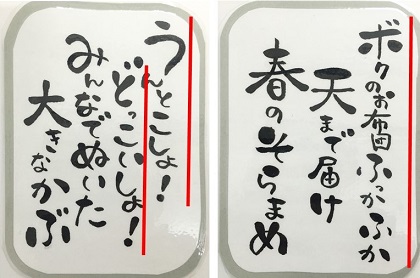 うんとこしょ！
どっこいしょ！
みんなでぬいた
大きなかぶ
ボクのお布団ふっかふか
天まで届け
春のそらまめ